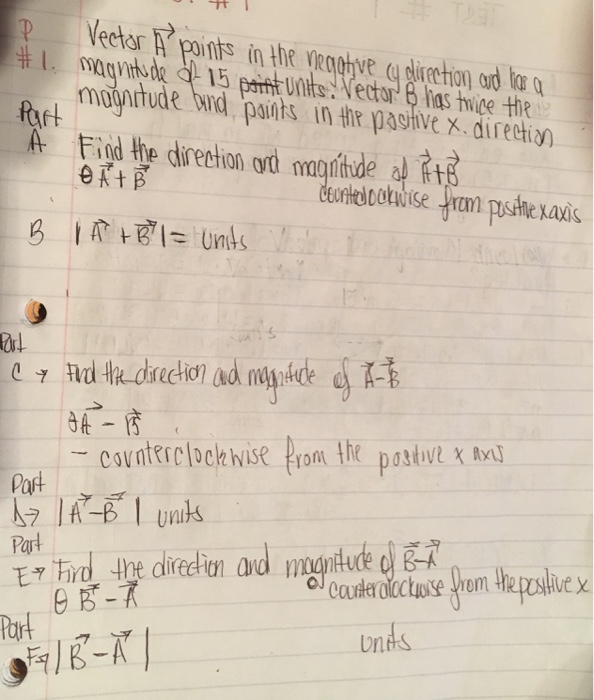 P
#1. Vector A⃗ points in the negative y direction and has a
magnitude of 15 units. Vector B has twice the
magnitude and points in the positive x. direction
Part
A Find the direction and magnitude of A⃗+B⃗
θ A⃗+B⃗
counterclockwise from positive x axis
B |A⃗ + B⃗| = units
Part
C → Find the direction and magnitude of A⃗-B⃗
θA⃗ - B⃗
- counterclockwise from the positive x axis
Part
D→ |A⃗-B⃗| units
Part
E→ Find the direction and magnitude of B⃗-A⃗
θ B⃗ - A⃗ counterclockwise from the positive x
Part
F→ |B⃗ - A⃗| units